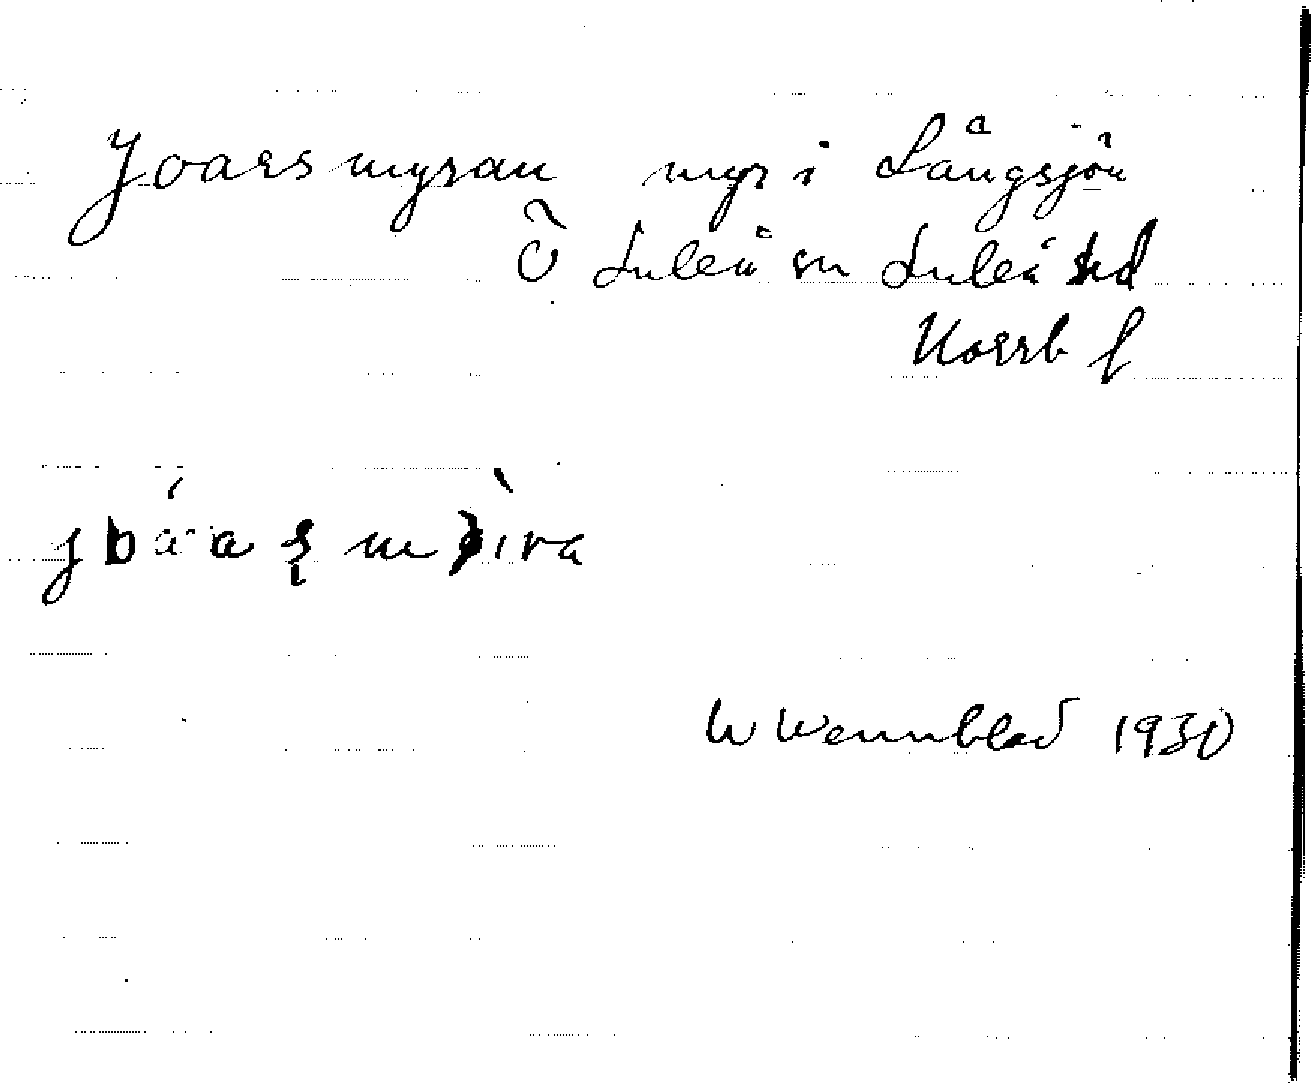 Joarsmyran myr i Långsjön
Ö Luleå sn Luleå skd
Norrb l
W Wennblad 1930